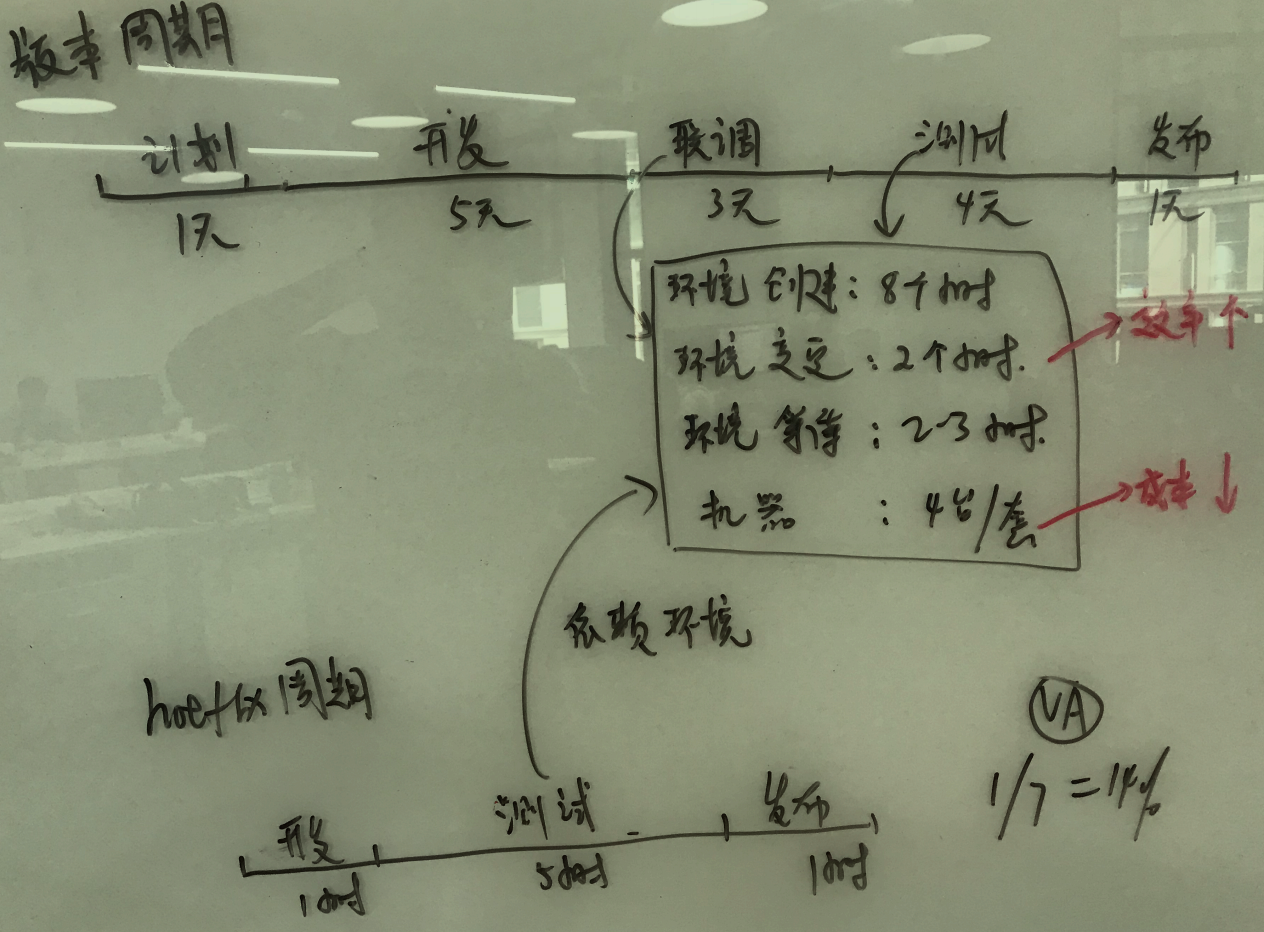 版本周期
计划 开发 联调 测试 发布
1天 5天 3天 4天 1天
环境创建：8个小时
环境变更：2个小时. 效率↑
环境等待：2-3小时.
机器：4台/套 成本↓
依赖环境
hotfix周期
VA
1/7=14%
开发 测试 发布
1小时 5小时 1小时